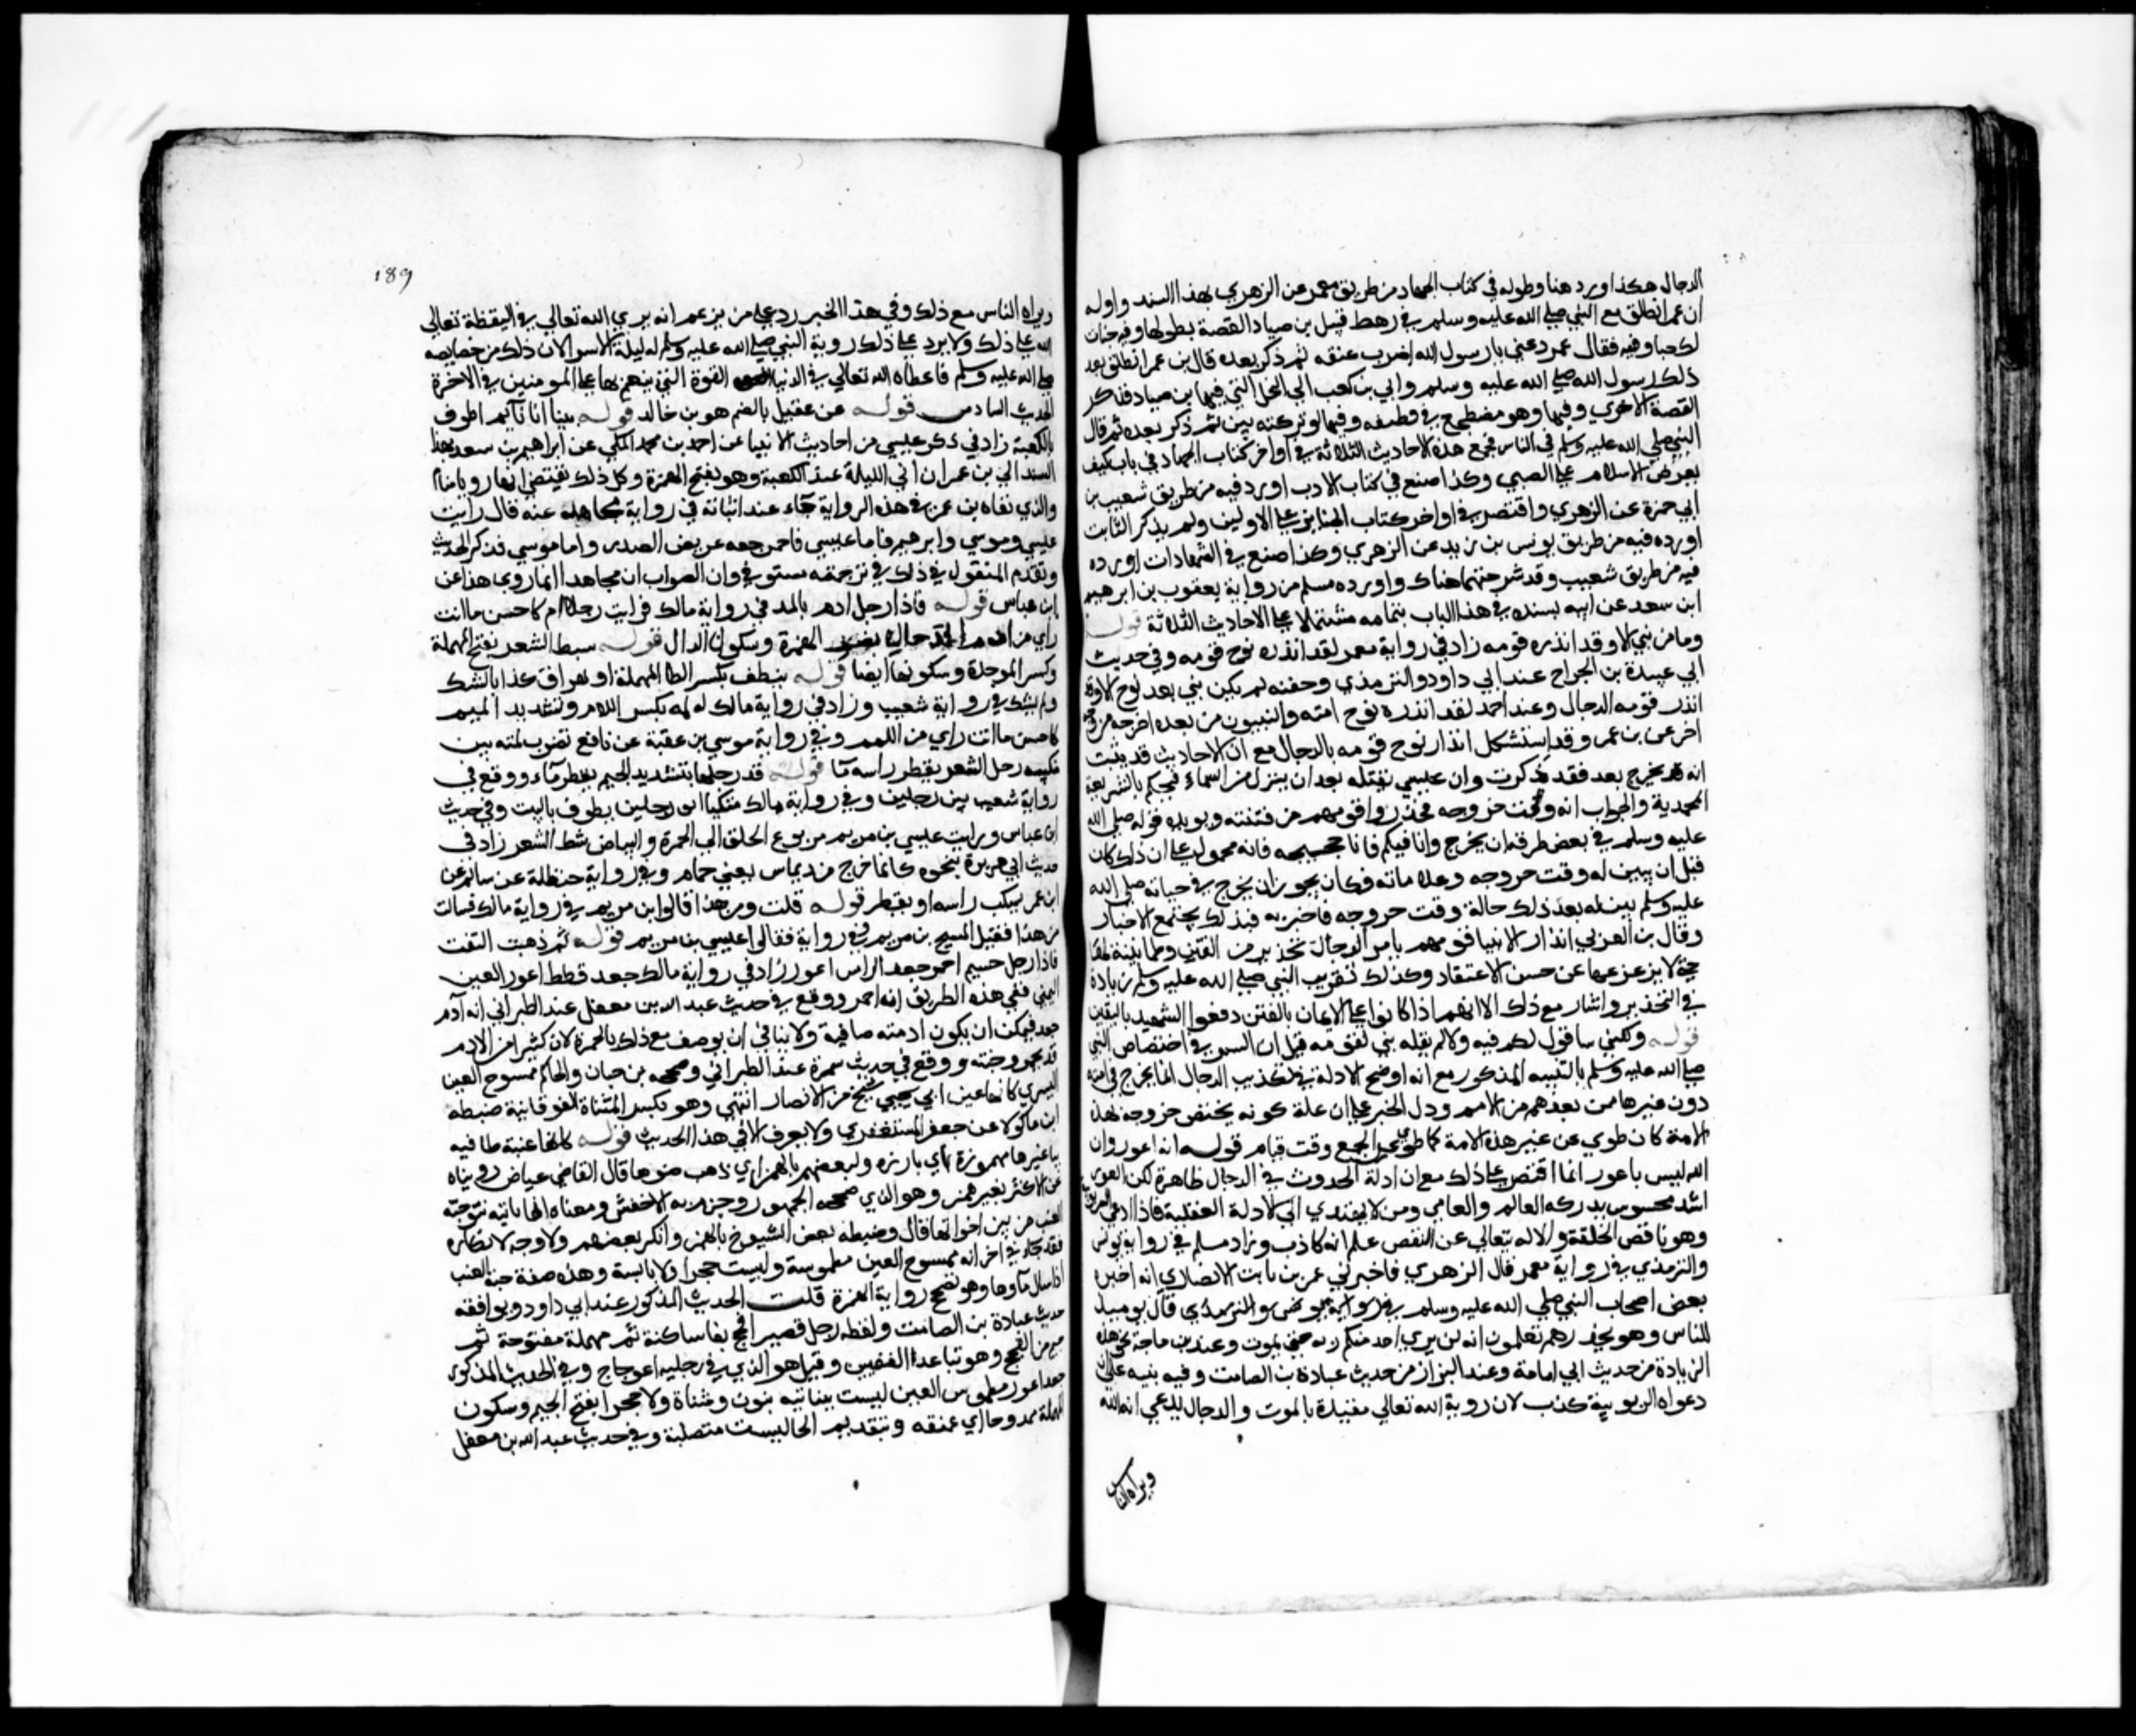 الدجال هكذا اورد هنا وطوله في كتاب الجهاد من طريق معمر عن الزهري بهذا السند واوله
ان عمر انطلق مع النبي صلى الله عليه وسلم في رهط قبل بن صياد القصة بطولها وفيه خبات
لك خبا وفيه فقال عمر دعني يا رسول الله اضرب عنقه ثم ذكر بعده قال بن عمر انطلق بعد
ذلك رسول الله صلى الله عليه وسلم وابي بن كعب الي النخل التي فيها بن صياد فذكر
القصة الاخري وفيها وهو مضطجع في قطيفه وفيها لو تركته بين ثم ذكر بعده ثم قال
النبي صلى الله عليه وسلم في الناس فجمع هذه الاحاديث الثلاثة في اواخر كتاب الجهاد في باب كيف
يعرض الاسلام على الصبي وكذا صنع في كتاب الادب اورد فيه من طريق شعيب بن
ابي حمزة عن الزهري واقتصر في اواخر كتاب الجنايز على الاولين ولم يذكر الثابت
اورده فيه من طريق يونس بن يزيد عن الزهري وكذا صنع في الشهادات اورده
فيه من طريق شعيب وقد شرحتهما هناك واورده مسلم من رواية يعقوب بن ابراهيم
ابن سعد عن ابيه بسنده في هذا الباب بتمامه مشتملا على الاحاديث الثلاثة قوله
وما من نبي الا وقد انذره قومه زاد في رواية معمر لقد انذره نوح قومه وفي حديث
ابي عبيدة بن الجراح عند ابي داود والترمذي وحسنه لم يكن نبي بعد نوح الا وقد
انذر قومه الدجال وعند احمد لقد انذره نوح امته والنبيون من بعده اخرجه من وجه
اخر عن بن عمر وقد استشكل انذار نوح قومه بالدجال مع ان الاحاديث قد ثبتت
انه يخرج بعد فقد ذكرت وان عيسي يقتله بعد ان ينزل من السماء فيحكم بالشريعة
المحمدية والجواب انه وقت خروجه فحذروا قومهم من فتنته ويويده قوله صلى الله
عليه وسلم في بعض طرقه ان يخرج وانا فيكم فانا حجيجه فانه محمول على ان ذلك كان
قبل ان يبين له وقت خروجه وعلاماته فكان يجوز ان يخرج في حياته صلى الله
عليه وسلم بين له بعد ذلك حالة وقت خروجه فاخبر به فبذلك يجتمع الاخبار
وقال بن العربي انذار الانبيا قومهم بامر الدجال تحذير من الفتن وطمانينة لها
حتي لا يزعزعها عن حسن الاعتقاد وكذلك تقريب النبي صلى الله عليه وسلم زيادة
في التحذير واشار مع ذلك الا انهم اذا كانوا على الايمان بالفتن دفعوا الشبهة باليقين
قوله ولكني ساقول لكم فيه ولا لم يقله نبي لقومه قيل ان السر في اختصاص النبي
صلى الله عليه وسلم بالتنبيه المذكور مع انه اوضح الادلة في تكذيب الدجال انما يخرج في امته
دون غيرها ممن بعدهم من الامم ودل الخبر على ان علم كونه يختص خروجه بهذه
الامة كان طوي عن غير هذه الامة كما طوي عن الجميع وقت قيام قوله انه اعور وان
الله ليس باعور انما اقتصر على ذلك مع ان ادلة الحدوث في الدجال ظاهرة لكن العور
اثر محسوس يدركه العالم والعامي ومن لا يهتدي الي الادلة العقلية فاذا ادعي الربوبية
وهو ناقص الخلقة والاله يتعالي عن النقص علم انه كاذب وزاد مسلم في رواية يونس
والترمذي في رواية معمر قال الزهري فاخبرني عمر بن ثابت الانصاري انه اخبره
بعض اصحاب النبي صلى الله عليه وسلم في رواية يونس والترمذي قال يوميذ
للناس وهو يحذرهم تعلمون انه لن يري احد منكم ربه حتي يموت وعند بن ماجة نحو هذه
الزيادة من حديث ابي امامة وعند البزاز من حديث عبادة بن الصامت وفيه تنبيه على ان
دعواه الربوبية كذب لان روية الله تعالي مقيدة بالموت والدجال يدعي انه الله
ويراه الناس
189
ويراه الناس مع ذلك وفي هذا الخبر رد على من يزعم انه يري الله تعالي في اليقظة تعالي
الله عن ذلك ولا يرد على ذلك روية النبي صلى الله عليه وسلم له ليلة الاسرا لان ذلك من خصايصه
صلى الله عليه وسلم فاعطاه الله تعالي في الدنيا القوة التي ينعم بها على المومنين في الاخرة
الحديث السادس قوله عن عقيل بالضم هو بن خالد قوله بينا انا نايم اطوف
بالكعبة زاد في ذكر عيسي من احاديث الانبيا عن احمد بن محمد المكي عن ابراهيم بن سعد بهذا
السند الي بن عمر ان اني الليلة عند الكعبة وهو بفتح الهمزة وكل ذلك يقتضي انها رويا منام
والذي نفاه بن عمر في هذه الرواية جاء عند اثباته في رواية مجاهد عنه قال رايت
عيسي وموسي وابرهيم فاما عيسي فاحمر جعد عريض الصدر واما موسي فذكر الحديث
وتقدم المنقول في ذلك في ترجمته مستوفي وان الصواب ان مجاهدا انما روي هذا عن
ابن عباس قوله فاذا رجل ادم بالمد في رواية مالك فرايت رجلا ادم كاحسن ما انت
راي من ادم الرجال بضم الهمزة وسكون الدال قوله سبط الشعر بفتح المهملة
وكسر الموحدة وسكونها ايضا قوله ينطف بكسر الطا المهملة او يهراق كذا بالشك
ولم يشك في رواية شعيب وزاد في رواية مالك له لمة بكسر اللام وتشديد الميم
كاحسن ما انت راي من اللمم وفي رواية موسي بن عقبة عن نافع تضرب لمته بين
منكبيه رجل الشعر يقطر راسه مآ قوله قد رجلها بتشديد الجيم يقطر ماء ووقع في
رواية شعيب بين رجلين وفي رواية مالك متكيا على رجلين يطوف بالبيت وفي حديث
ابن عباس ورايت عيسي بن مريم مربوع الخلق الي الحمرة والبياض سبط الشعر زاد في
حديث ابي هريرة بنحوه كانما خرج من ديماس يعني حمام وفي رواية حنظلة عن سالم عن
ابن عمر يسكب راسه او يقطر قوله قلت من هذا قالوا ابن مريم في رواية مالك فسالت
من هذا فقيل المسيح بن مريم وفي رواية فقالوا عيسي بن مريم قوله ثم ذهبت التفت
فاذا رجل جسيم احمر جعد الراس اعور زاد في رواية مالك جعد قطط اعور العين
اليمني ففي هذه الطريق انه احمر ووقع في حديث عبد الله بن مغفل عند الطبراني انه آدم
جعد فيمكن ان يكون ادمته صافية ولا ينافي ان يوصف مع ذلك بالحمرة لان كثيرا من الادم
قد تحمر وجنته ووقع في حديث سمرة عند الطبراني وصححه بن حبان والحاكم ممسوح العين
اليسري كانها عين ابي يحيي شيخ من الانصار انتهي وهو بكسر المثناة الفوقانية ضبطه
ابن ماكولا عن جعفر المستغفري ولا يعرف الا في هذا الحديث قوله كانها عنبة طافيه
بيا غير مهموزة اي بارزه ولبعضهم بالهمز اي ذهب ضوها قال القاضي عياض رويناه
عن الاكثر بغير همز وهو الذي صححه الجمهور وجزم به الاخفش ومعناه انها ناتيه نتو حبة
العنب من بين اخواتها قال وضبطه بعض الشيوخ بالهمز وانكر بعضهم ولا وجه لانكاره
فقد جاء في اخر انه ممسوح العين مطموسة وليست حجرا ولا ناتية وهذه صفة حبة العنب
اذا سال ماوها وهو تصحح رواية الهمزة قلت الحديث المذكور عند ابي داود ويوافقه
حديث عبادة بن الصامت ولفظه رجل قصير افحج بفا ساكنة ثم مهملة مفتوحة ثم
جيم من الفحج وهو تباعد الفخذين وقيل هو الذي في رجليه اعوجاج وفي الحديث المذكور
جعد اعور مطموس العين ليست بناتيه بنون ومثناة ولا جحرا بفتح الجيم وسكون
المهملة ممدود اي عميقه وبتقديم الحا ليست متصلبة وفي حديث عبد الله بن مغفل